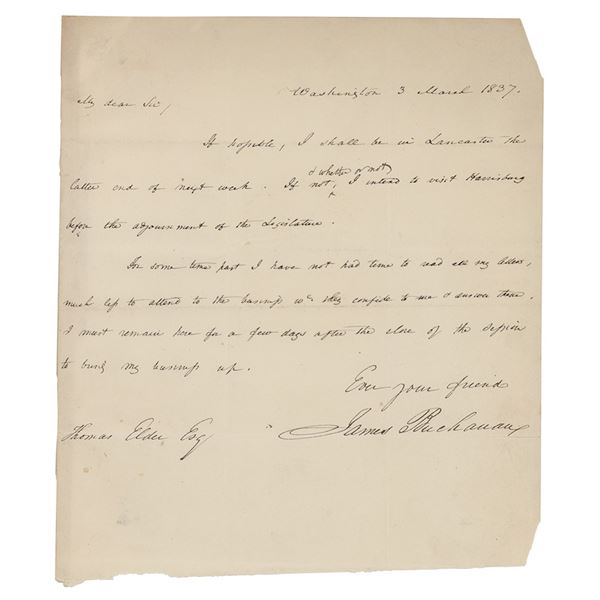 Washington 3 March 1837.
My dear Sir,
If possible, I shall be in Lancaster the
& whether or not
latter end of next week. If not, I intend to visit Harrisburg
before the adjournment of the Legislature.
For some time past I have not had time to read all my letters,
much less to attend to the business wh. they confide to me & answer them.
I must remain here for a few days after the close of the Session
to bring my business up.
Ever your friend
Thomas Elder Esq James Buchanan